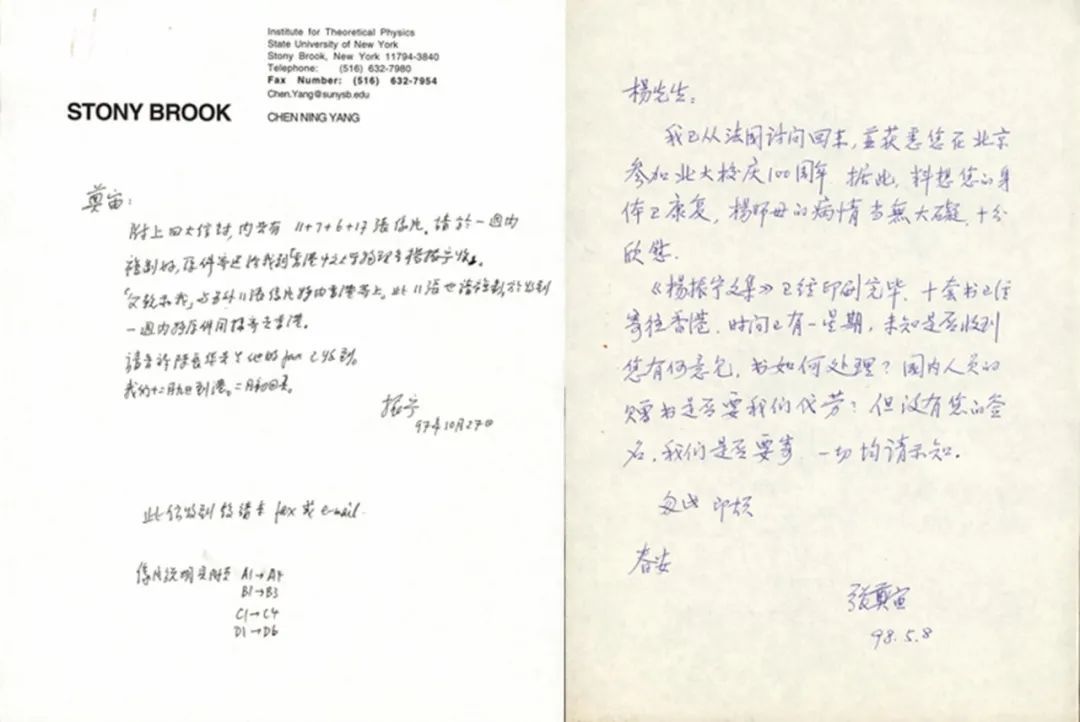 Institute for Theoretical Physics
State University of New York
Stony Brook, New York 11794-3840
Telephone: (516) 632-7980
Fax Number: (516) 632-7954
Chen.Yang@sunysb.edu
STONY BROOK
CHEN NING YANG
奠宙:
附上四大信封,内共有 11+7+6+17 張像片。請於一週内
複制好,原件寄还给我到「香港中文大学物理系楊振宁收」。
一週内将原件同樣寄去香港。
我們十二月九日到港。二月初回美。
振宁
97年10月27日
此信收到後請来 fax 或 e-mail.
像片説明見附頁 A1→A4
B1→B3
C1→C4
D1→D6
杨先生:
我已从法国访问回来,并获悉您在北京
参加北大校庆100周年. 据此, 料想您的身
体已康复, 杨师母的病情当無大礙, 十分
欣慰.
《杨振宁文集》已经印刷完毕, 十套书已经
寄往香港. 时间已有一星期, 未知是否收到
您有何意见, 书如何处理? 国内人员的
赠书是否要我们代劳? 但没有您的签
名, 我们是否要寄. 一切均请示知.
匆此 即颂
春安
张奠宙
98.5.8